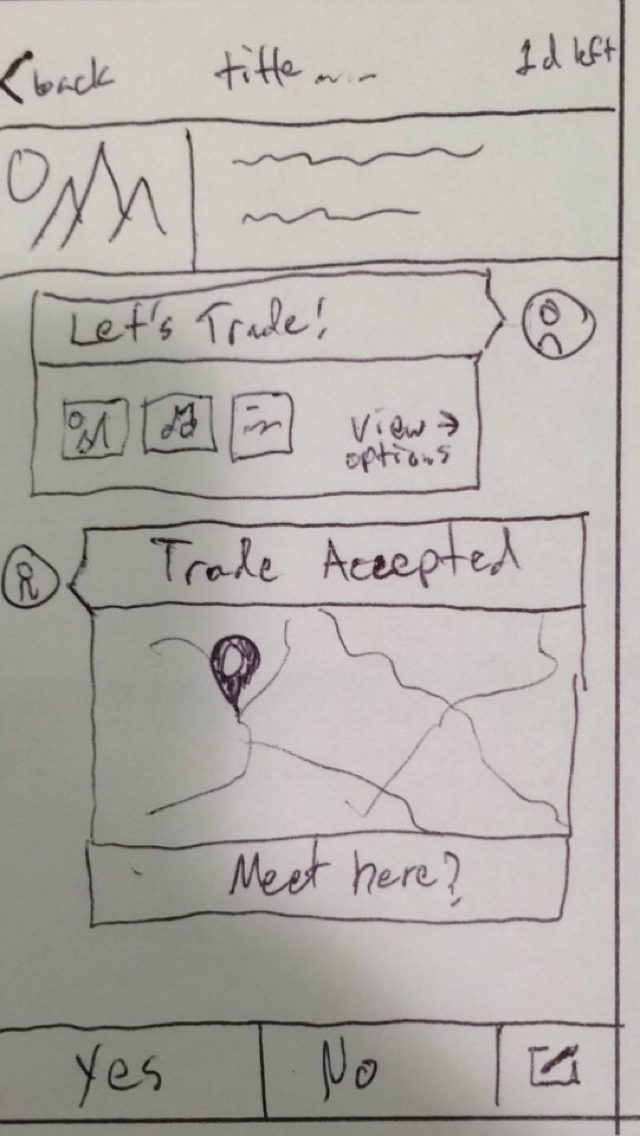 < back
title
1d left
Let's Trade!
View →
options
Trade Accepted
Meet here?
Yes
No